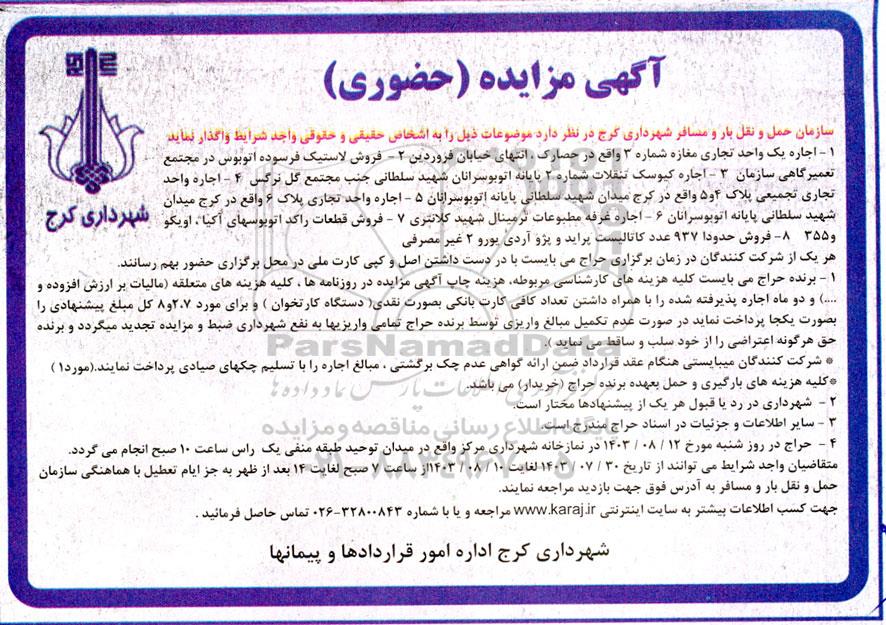 آگهی مزایده (حضوری)
شهرداری کرج
سازمان حمل و نقل بار و مسافر شهرداری کرج در نظر دارد موضوعات ذیل را به اشخاص حقیقی و حقوقی واجد شرایط واگذار نماید
۱- اجاره یک واحد تجاری مغازه شماره ۳ واقع در حصارک ، انتهای خیابان فروردین ۲ - فروش لاستیک فرسوده اتوبوس در مجتمع
تعمیرگاهی سازمان ۳ - اجاره کیوسک تنقلات شماره ۲ پایانه اتوبوسرانان شهید سلطانی جنب مجتمع گل نرگس ۴ - اجاره واحد
تجاری تجمیعی پلاک ۴و۵ واقع در کرج میدان شهید سلطانی پایانه اتوبوسرانان ۵ - اجاره واحد تجاری پلاک ۶ واقع در کرج میدان
شهید سلطانی پایانه اتوبوسرانان ۶ - اجاره غرفه مطبوعات ترمینال شهید کلانتری ۷ - فروش قطعات راکد اتوبوسهای آکیا ، اویکو
و۳۵۵ ۸- فروش حدودا ۹۳۷ عدد کاتالیست پراید و پژو آردی یورو ۲ غیر مصرفی
هر یک از شرکت کنندگان در زمان برگزاری حراج می بایست با در دست داشتن اصل و کپی کارت ملی در محل برگزاری حضور بهم رسانند.
۱- برنده حراج می بایست کلیه هزینه های کارشناسی مربوطه، هزینه چاپ آگهی مزایده در روزنامه ها ، کلیه هزینه های متعلقه (مالیات بر ارزش افزوده و
....) و دو ماه اجاره پذیرفته شده را با همراه داشتن تعداد کافی کارت بانکی بصورت نقدی( دستگاه کارتخوان ) و برای مورد ۲،۷و۸ کل مبلغ پیشنهادی را
بصورت یکجا پرداخت نماید در صورت عدم تکمیل مبالغ واریزی توسط برنده حراج تمامی واریزیها به نفع شهرداری ضبط و مزایده تجدید میگردد و برنده
حق هرگونه اعتراضی را از خود سلب و ساقط می نماید ).
* شرکت کنندگان میبایستی هنگام عقد قرارداد ضمن ارائه گواهی عدم چک برگشتی ، مبالغ اجاره را با تسلیم چکهای صیادی پرداخت نمایند.(مورد۱ )
*کلیه هزینه های بارگیری و حمل بعهده برنده حراج (خریدار) می باشد.
۲ - شهرداری در رد یا قبول هر یک از پیشنهادها مختار است.
۳ - سایر اطلاعات و جزئیات در اسناد حراج مندرج است.
۴ - حراج در روز شنبه مورخ ۱۲ / ۰۸ / ۱۴۰۳ در نمازخانه شهرداری مرکز واقع در میدان توحید طبقه منفی یک راس ساعت ۱۰ صبح انجام می گردد.
متقاضیان واجد شرایط می توانند از تاریخ ۳۰ / ۰۷ / ۱۴۰۳ لغایت ۱۰ / ۰۸ / ۱۴۰۳از ساعت ۷ صبح لغایت ۱۴ بعد از ظهر به جز ایام تعطیل با هماهنگی سازمان
حمل و نقل بار و مسافر به آدرس فوق جهت بازدید مراجعه نمایند.
جهت کسب اطلاعات بیشتر به سایت اینترنتی www.karaj.ir مراجعه و یا با شماره ۳۲۸۰۰۸۴۳-۰۲۶ تماس حاصل فرمائید .
شهرداری کرج اداره امور قراردادها و پیمانها
ParsNamadData